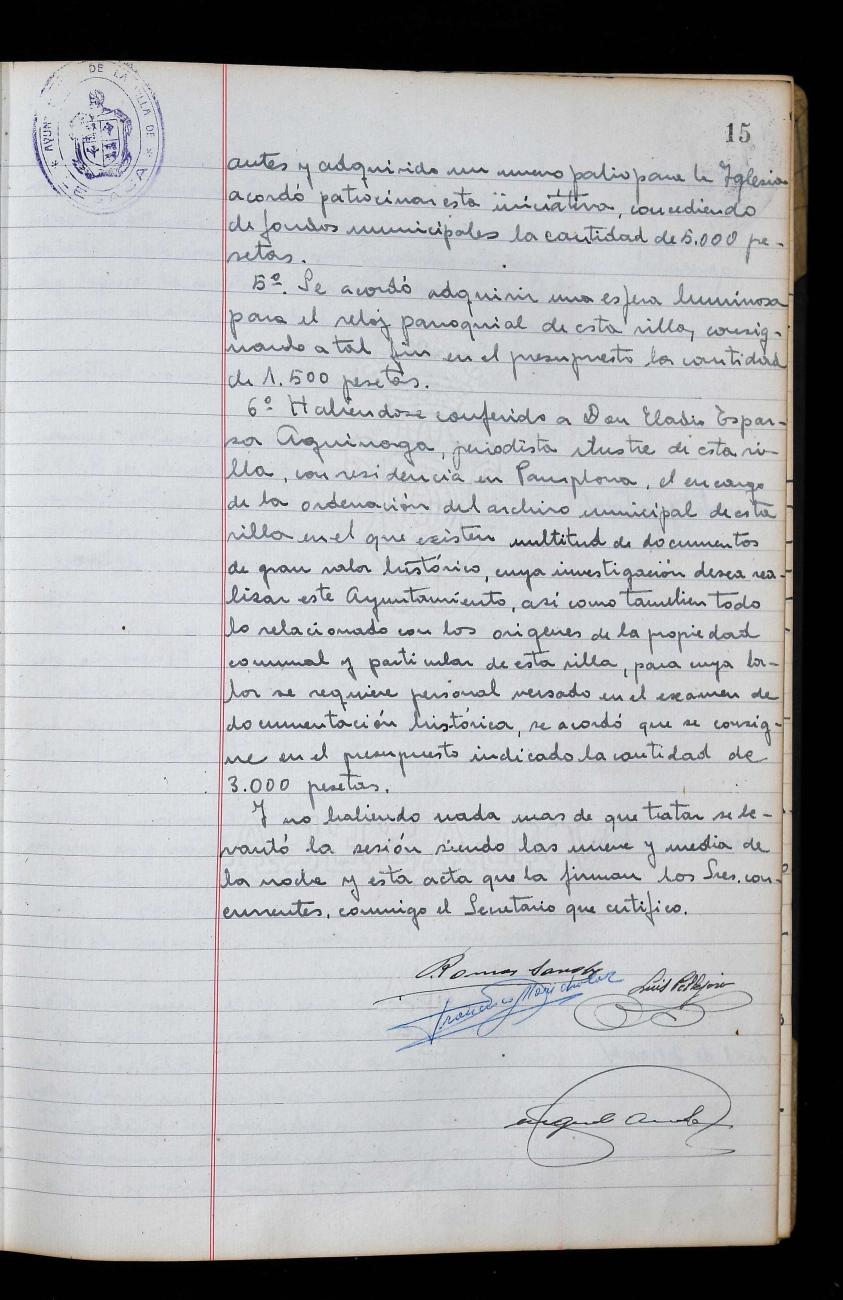 AYUN DE LA VILLA DE
LESACA
15
antes y adquirido un nuevo palio para la Iglesia
acordó patrocinar esta iniciativa, concediendo
de fondos municipales la cantidad de 5.000 pe-
setas.
5º. Se acordó adquirir una esfera luminosa
para el reloj parroquial de esta villa, consig-
nando a tal fin en el presupuesto la cantidad
de 1.500 pesetas.
6º Habiendose conferido a Don Eladio Espar-
za Aguinaga, periodista ilustre de esta vi-
lla, con residencia en Pamplona, el encargo
de la ordenación del archivo municipal de esta
villa en el que existen multitud de documentos
de gran valor histórico, cuya investigación desea rea-
lizar este Ayuntamiento, así como tambien todo
lo relacionado con los origenes de la propiedad
comunal y particular de esta villa, para cuya la-
bor se requiere personal versado en el examen de
documentación histórica, se acordó que se consig-
ne en el presupuesto indicado la cantidad de
3.000 pesetas.
Y no habiendo nada mas de que tratar se le-
vantó la sesión siendo las nueve y media de
la noche y esta acta que la firman los Sres. con-
currentes, conmigo el Secretario que certifico.
Francisco
Luis Pellejero
Miguel